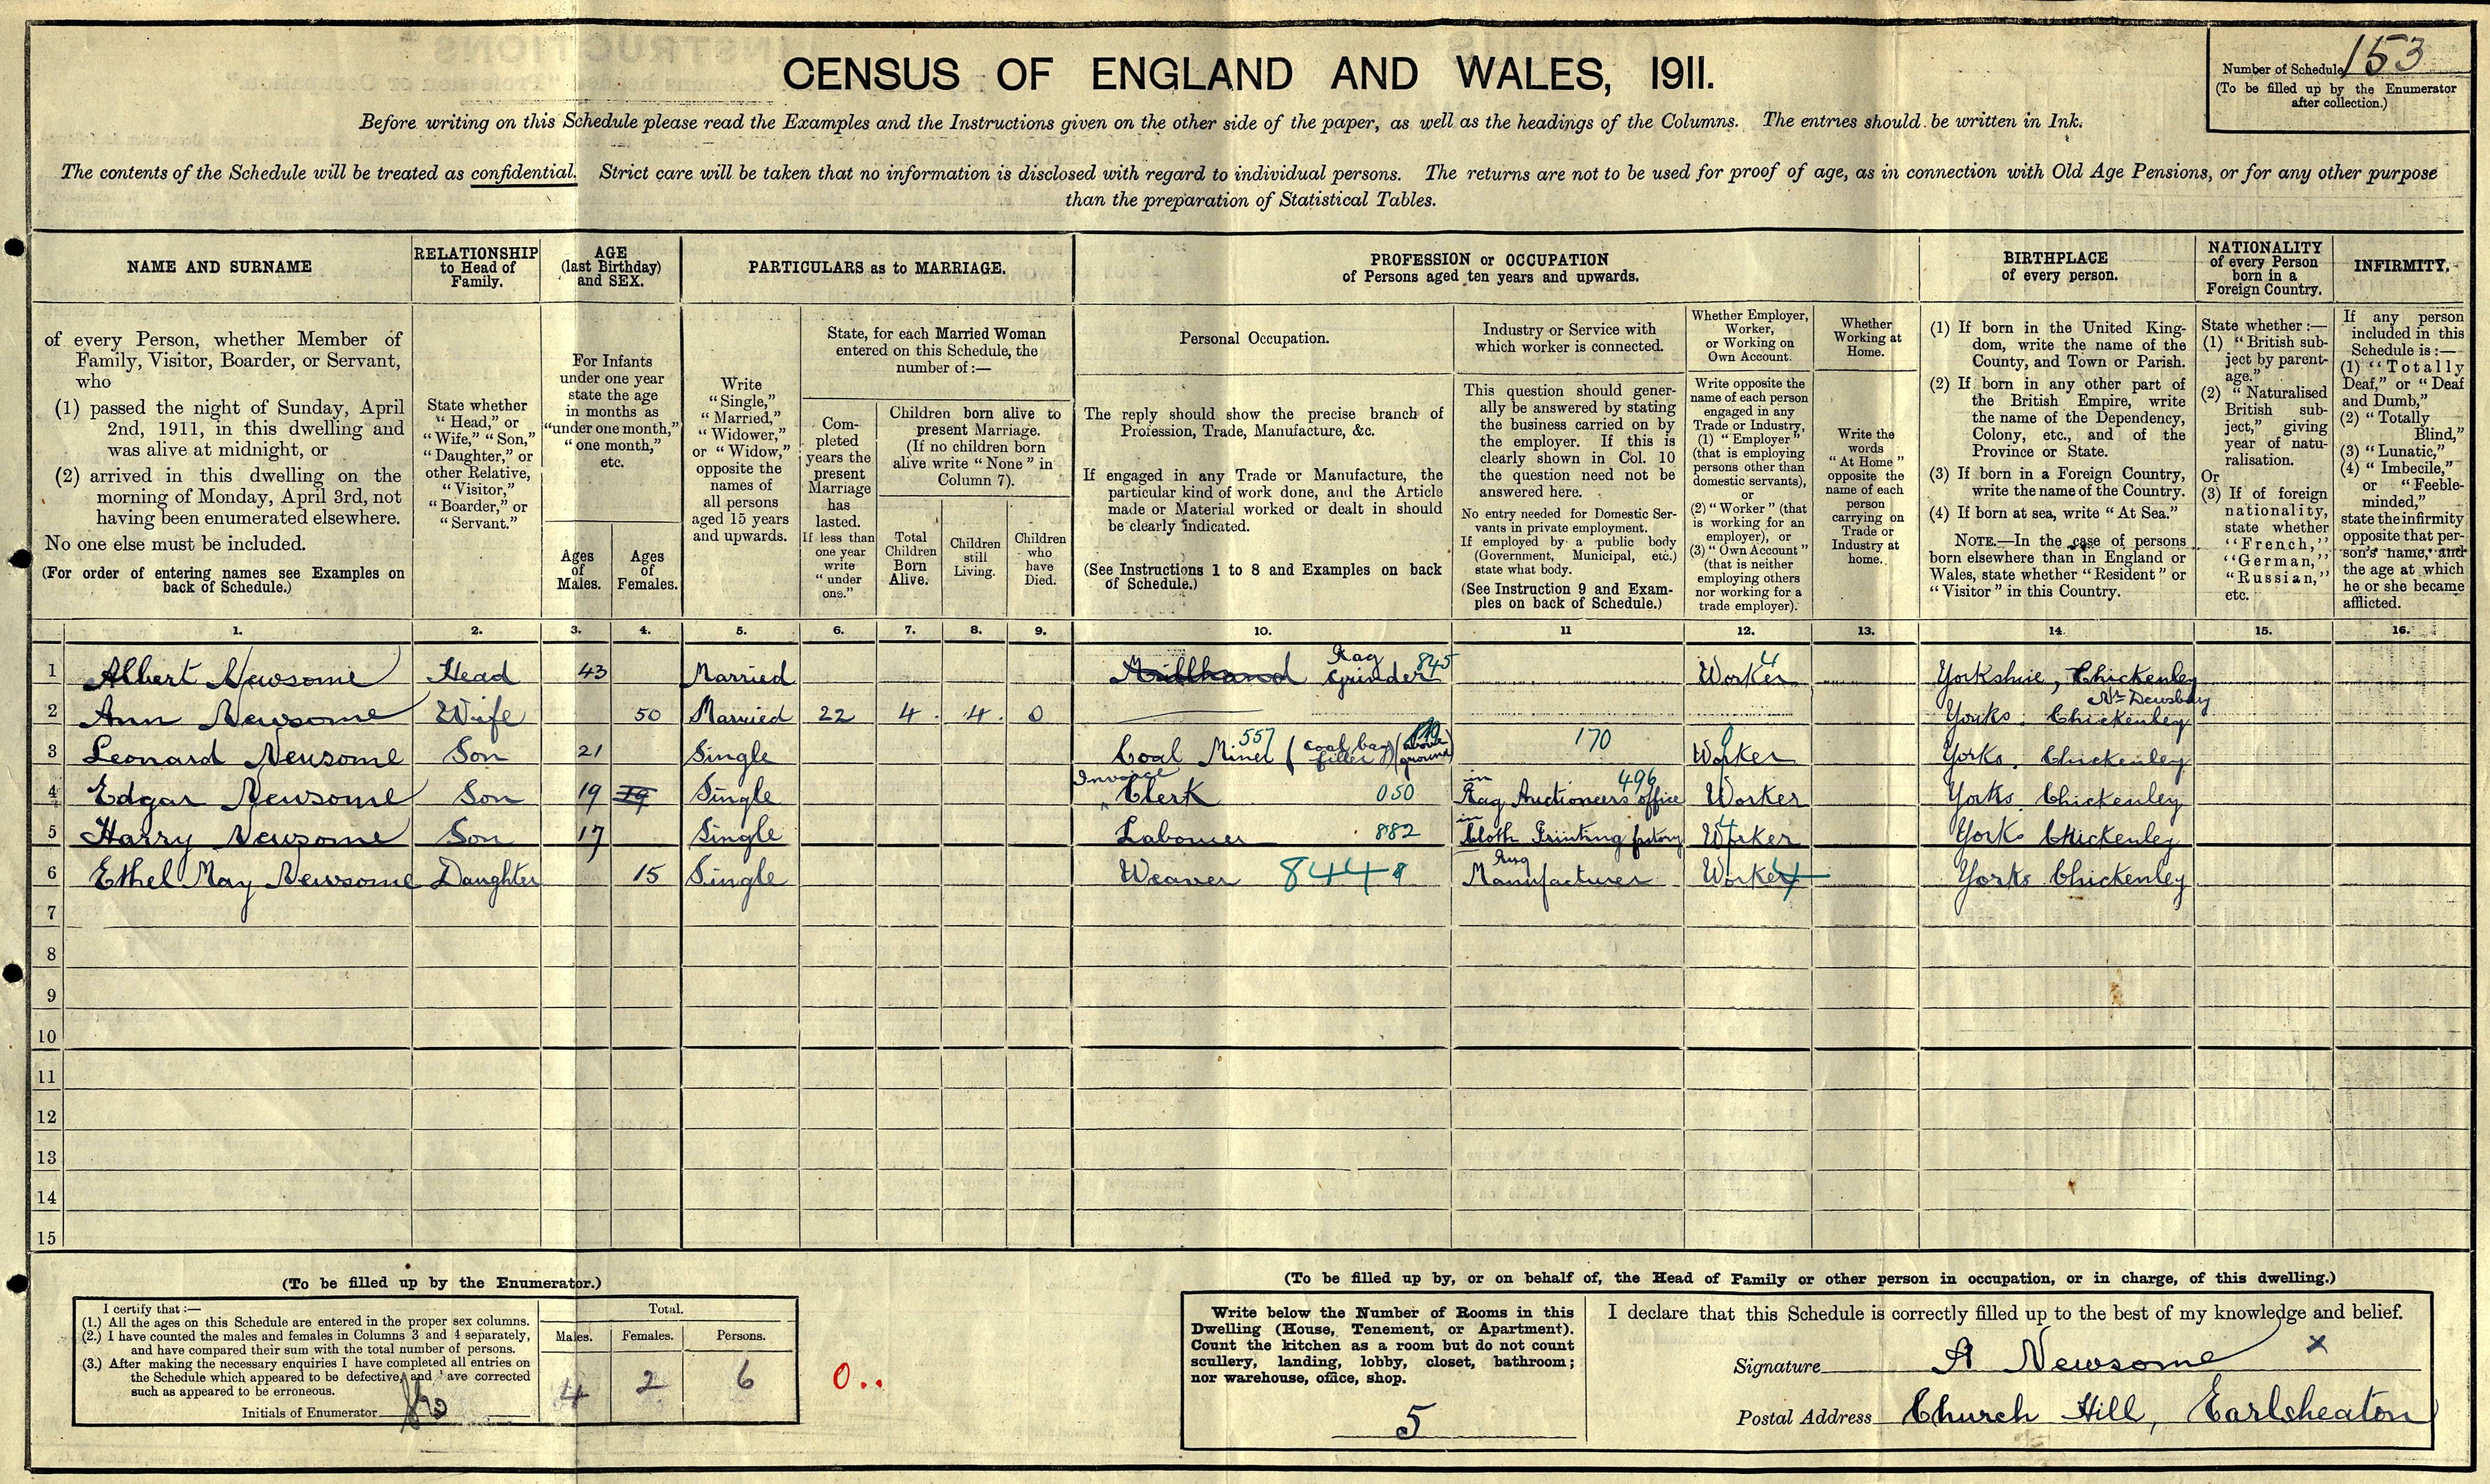 CENSUS OF ENGLAND AND WALES, 1911.
Number of Schedule 153
(To be filled up by the Enumerator
after collection.)
Before writing on this Schedule please read the Examples and the Instructions given on the other side of the paper, as well as the headings of the Columns. The entries should be written in Ink.
The contents of the Schedule will be treated as confidential. Strict care will be taken that no information is disclosed with regard to individual persons. The returns are not to be used for proof of age, as in connection with Old Age Pensions, or for any other purpose
than the preparation of Statistical Tables.
NAME AND SURNAME
of every Person, whether Member of
Family, Visitor, Boarder, or Servant,
who
(1) passed the night of Sunday, April
2nd, 1911, in this dwelling and
was alive at midnight, or
(2) arrived in this dwelling on the
morning of Monday, April 3rd, not
having been enumerated elsewhere.
No one else must be included.
(For order of entering names see Examples on
back of Schedule.)
RELATIONSHIP
to Head of
Family.
State whether
"Head," or
"Wife," "Son,"
"Daughter," or
other Relative,
"Visitor,"
"Boarder," or
"Servant."
AGE
(last Birthday)
and SEX.
For Infants
under one year
state the age
in months as
"under one month,"
"one month,"
etc.
Ages
of
Males.
Ages
of
Females.
PARTICULARS as to MARRIAGE.
Write
"Single,"
"Married,"
"Widower,"
or "Widow,"
opposite the
names of
all persons
aged 15 years
and upwards.
State, for each Married Woman
entered on this Schedule, the
number of:—
Com-
pleted
years the
present
Marriage
has
lasted.
If less than
one year
write
"under
one."
Children born alive to
present Marriage.
(If no children born
alive write "None" in
Column 7).
Total
Children
Born
Alive.
Children
still
Living.
Children
who
have
Died.
PROFESSION or OCCUPATION
of Persons aged ten years and upwards.
Personal Occupation.
The reply should show the precise branch of
Profession, Trade, Manufacture, &c.
If engaged in any Trade or Manufacture, the
particular kind of work done, and the Article
made or Material worked or dealt in should
be clearly indicated.
(See Instructions 1 to 8 and Examples on back
of Schedule.)
Industry or Service with
which worker is connected.
This question should gener-
ally be answered by stating
the business carried on by
the employer. If this is
clearly shown in Col. 10
the question need not be
answered here.
No entry needed for Domestic Ser-
vants in private employment.
If employed by a public body
(Government, Municipal, etc.)
state what body.
(See Instruction 9 and Exam-
ples on back of Schedule.)
Whether Employer,
Worker,
or Working on
Own Account.
Write opposite the
name of each person
engaged in any
Trade or Industry,
(1) "Employer"
(that is employing
persons other than
domestic servants),
or
(2) "Worker" (that
is working for an
employer), or
(3) "Own Account"
(that is neither
employing others
nor working for a
trade employer).
Whether
Working at
Home.
Write the
words
"At Home"
opposite the
name of each
person
carrying on
Trade or
Industry at
home.
BIRTHPLACE
of every person.
(1) If born in the United King-
dom, write the name of the
County, and Town or Parish.
(2) If born in any other part of
the British Empire, write
the name of the Dependency,
Colony, etc., and of the
Province or State.
(3) If born in a Foreign Country,
write the name of the Country.
(4) If born at sea, write "At Sea."
NOTE.—In the case of persons
born elsewhere than in England or
Wales, state whether "Resident" or
"Visitor" in this Country.
NATIONALITY
of every Person
born in a
Foreign Country.
State whether:—
(1) "British sub-
ject by parent-
age."
(2) "Naturalised
British sub-
ject," giving
year of natu-
ralisation.
Or
(3) If of foreign
nationality,
state whether
"French,"
"German,"
"Russian,"
etc.
INFIRMITY.
If any person
included in this
Schedule is:—
(1) "Totally
Deaf," or "Deaf
and Dumb,"
(2) "Totally
Blind,"
(3) "Lunatic,"
(4) "Imbecile,"
or "Feeble-
minded,"
state the infirmity
opposite that per-
son's name, and
the age at which
he or she became
afflicted.
1. 2. 3. 4. 5. 6. 7. 8. 9. 10. 11 12. 13. 14. 15. 16.
1 Albert Newsome Head 43 Married Millhand Rag Grinder 845 Worker 4 Yorkshire, Chickenley
Nr Dewsbury
2 Ann Newsome Wife 50 Married 22 4 4 0 Yorks. Chickenley
3 Leonard Newsome Son 21 Single Coal Miner 557 (coal bag filler) (above ground) 170 Worker Yorks. Chickenley
4 Edgar Newsome Son 19 19 Single Invoice Clerk 050 in Rag Auctioneers office 496 Worker Yorks. Chickenley
5 Harry Newsome Son 17 Single Labourer 882 in Cloth Printing factory Worker 4 Yorks Chickenley
6 Ethel May Newsome Daughter 15 Single Weaver 844 Rug Manufacturer Worker 4 Yorks Chickenley
7
8
9
10
11
12
13
14
15
(To be filled up by the Enumerator.)
I certify that:—
(1.) All the ages on this Schedule are entered in the proper sex columns.
(2.) I have counted the males and females in Columns 3 and 4 separately,
and have compared their sum with the total number of persons.
(3.) After making the necessary enquiries I have completed all entries on
the Schedule which appeared to be defective, and have corrected
such as appeared to be erroneous.
Initials of Enumerator
Total.
Males. Females. Persons.
4 2 6
0..
(To be filled up by, or on behalf of, the Head of Family or other person in occupation, or in charge, of this dwelling.)
Write below the Number of Rooms in this
Dwelling (House, Tenement, or Apartment).
Count the kitchen as a room but do not count
scullery, landing, lobby, closet, bathroom;
nor warehouse, office, shop.
5
I declare that this Schedule is correctly filled up to the best of my knowledge and belief.
Signature A Newsome x
Postal Address Church Hill, Earlsheaton